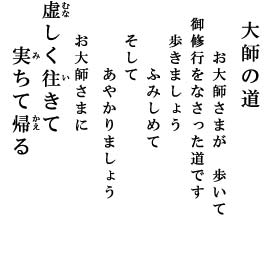 大師の道
お大師さまが　歩いて
御修行をなさった道です
歩きましょう
ふみしめて
そして
あやかりましょう
お大師さまに
虚しく往きて
実ちて帰る